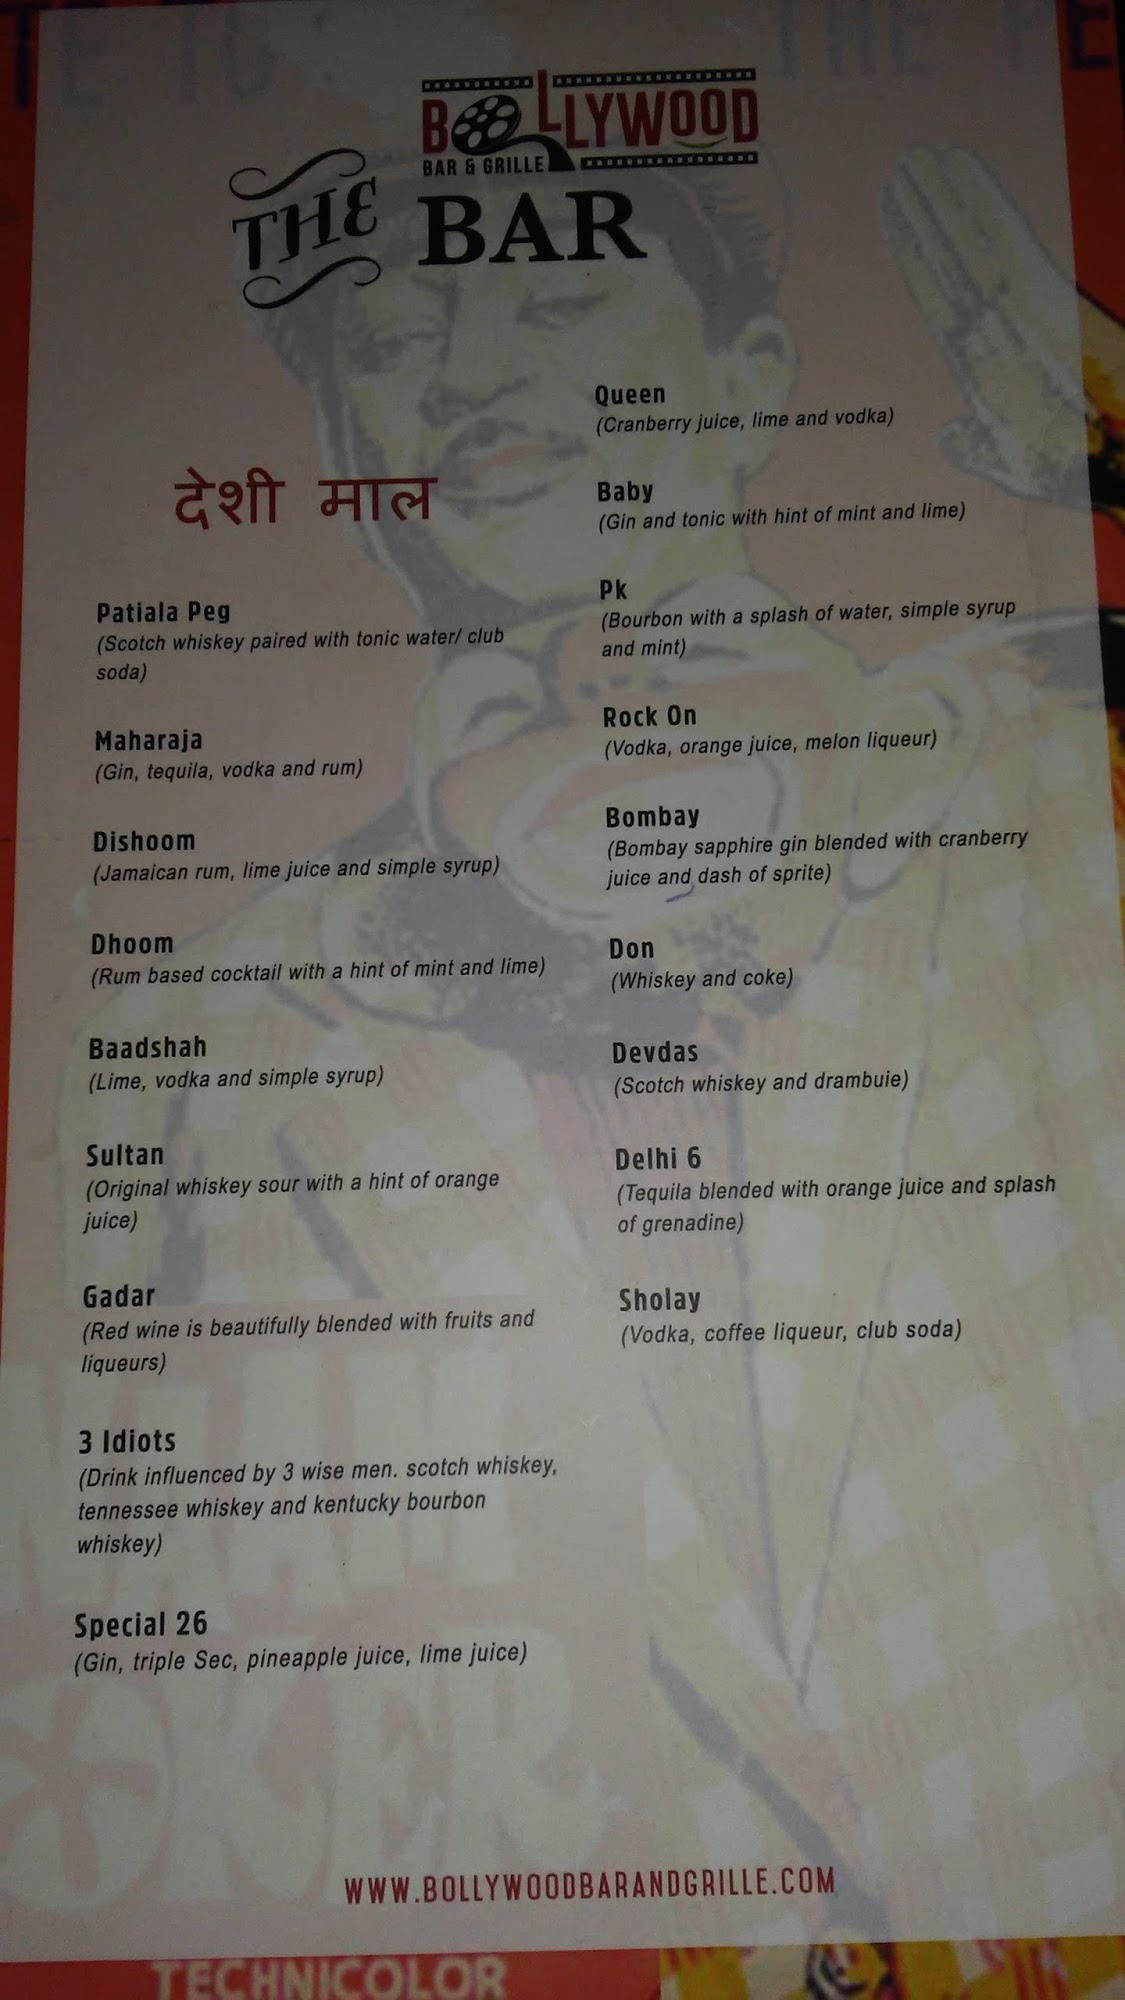 BOLLYWOOD
BAR & GRILLE
THE BAR
देशी माल
Patiala Peg
(Scotch whiskey paired with tonic water/ club
soda)
Maharaja
(Gin, tequila, vodka and rum)
Dishoom
(Jamaican rum, lime juice and simple syrup)
Dhoom
(Rum based cocktail with a hint of mint and lime)
Baadshah
(Lime, vodka and simple syrup)
Sultan
(Original whiskey sour with a hint of orange
juice)
Gadar
(Red wine is beautifully blended with fruits and
liqueurs)
3 Idiots
(Drink influenced by 3 wise men. scotch whiskey,
tennessee whiskey and kentucky bourbon
whiskey)
Special 26
(Gin, triple Sec, pineapple juice, lime juice)
Queen
(Cranberry juice, lime and vodka)
Baby
(Gin and tonic with hint of mint and lime)
Pk
(Bourbon with a splash of water, simple syrup
and mint)
Rock On
(Vodka, orange juice, melon liqueur)
Bombay
(Bombay sapphire gin blended with cranberry
juice and dash of sprite)
Don
(Whiskey and coke)
Devdas
(Scotch whiskey and drambuie)
Delhi 6
(Tequila blended with orange juice and splash
of grenadine)
Sholay
(Vodka, coffee liqueur, club soda)
WWW.BOLLYWOODBARANDGRILLE.COM
TECHNICOLOR